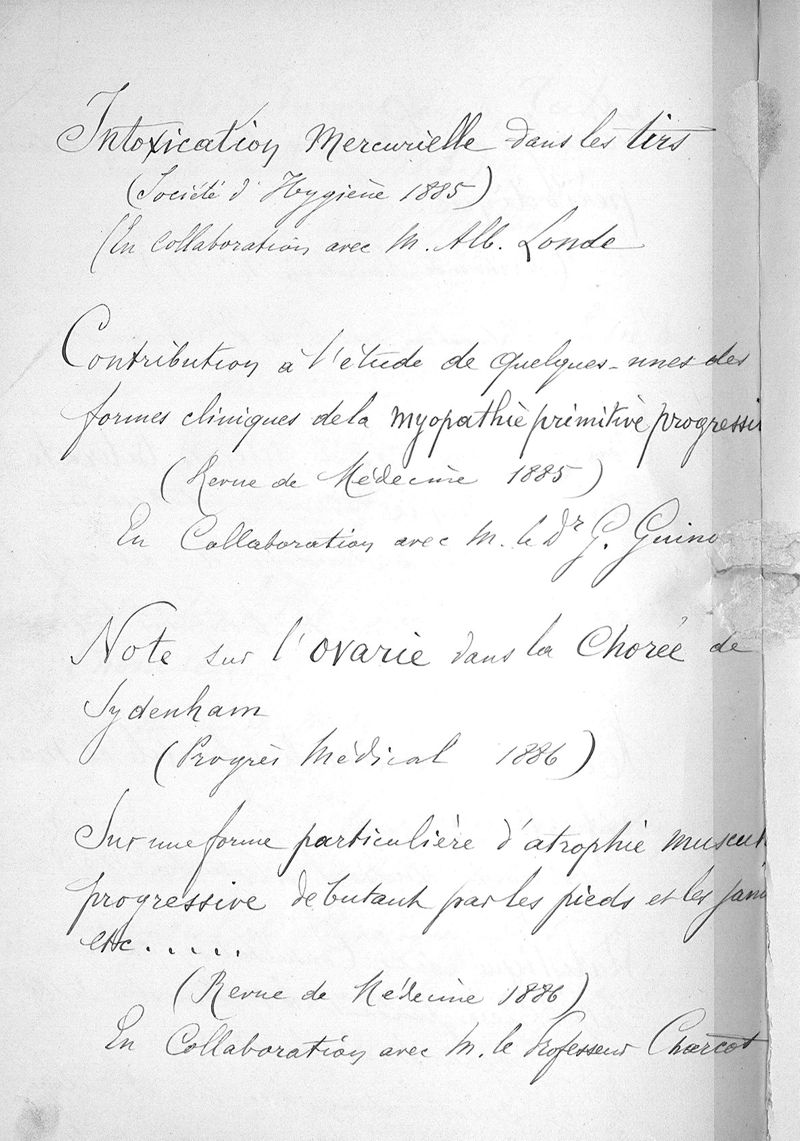 Intoxication Mercurielle dans les tirs
(Société d'Hygiène 1885)
(En Collaboration avec M. Alb. Londe
Contribution à l'étude de quelques-unes des
formes cliniques de la myopathie primitive progressi
(Revue de Médecine 1885)
En Collaboration avec M. le Dr G. Guino
Note sur l'ovarie dans la Chorée de
Sydenham
(Progrès Médical 1886)
Sur une forme particulière d'atrophie muscul
progressive débutant par les pieds et les jam
etc.....
(Revue de Médecine 1886)
En Collaboration avec M. le Professeur Charcot